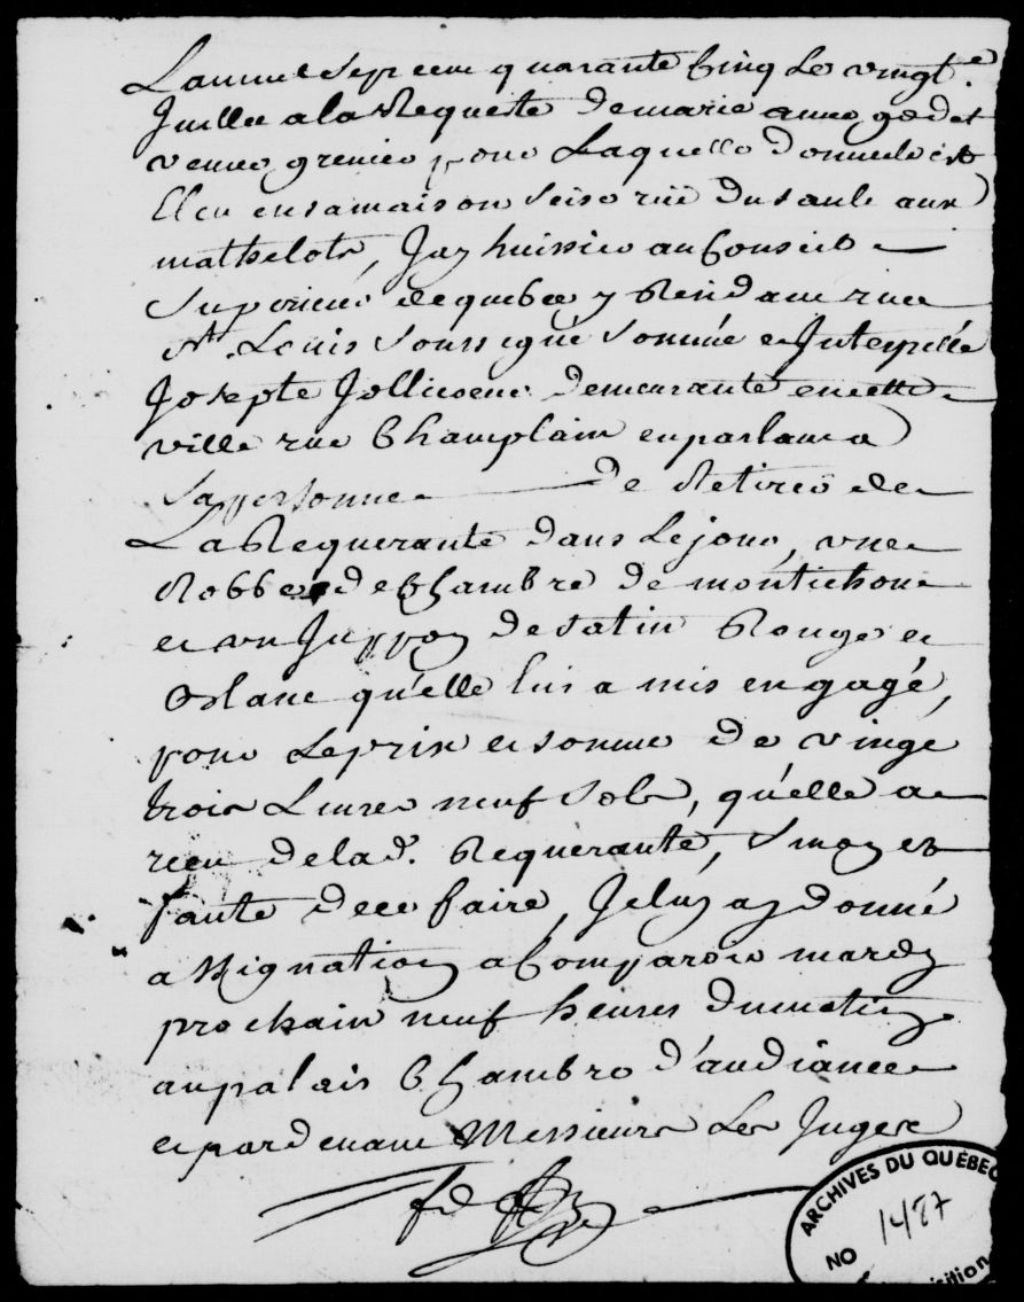 Lan mil Sept cent quarante Cinq Le vingt.e
Juillet a la Requeste de marie anne godet
veuve grenier pour Laquelle domicile est
Eleu en sa maison Seise rüe du sault aux
mathelots, Jay huissier au Conseil
Superieur de quebec y Residant rue
St. Louis Soussigné Sommé et Interpellé
Josepte Jollicoeur demeurante en cette
ville rue Champlain en parlant a
Sa personne de Retirer de
La Requerante dans Le jour, une
Robbe de Chambre de
et un Juppon de satin Rouge et
Blanc qu'elle luis a mis en gagé,
pour Le prix et somme de vingt
trois Livres neuf Sols, qu'elle a
receu de lad.e Requerante, Sinon et
faute de ce faire, Je luy ay donné
assignation a Comparoir mardy
prochain neuf heures du matin
au palais Chambre d'audiance
et pardevant Messieurs Les Juges
ARCHIVES DU QUÉBEC
NO 1487